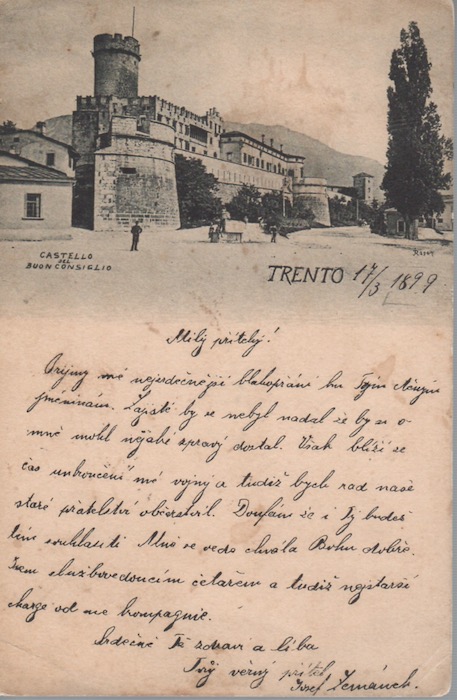 CASTELLO
DEL
BUON CONSIGLIO
TRENTO 17/3 1899
Milý příteli!
Přijmy mé nejsrdečnější blahopřání ku Tvým
jmeninám. Zajisté by se nebyl nadal že by se o
mně mohl nějaké spravy dostal. Však blíží se
čas unkončení mé vojny a tudiž bych rad naše
staré přatelství občerstvil. Doufám že i Ty budeš
tím souhlasiti Mně se vede chvála Bohu dobře.
Jsem službovedoucím četařem a tudiž nejstarší
charge od me kompagnie.
Srdečně Tě zdraví a líba
Tvůj věrný přítel
Josef Zemánek.